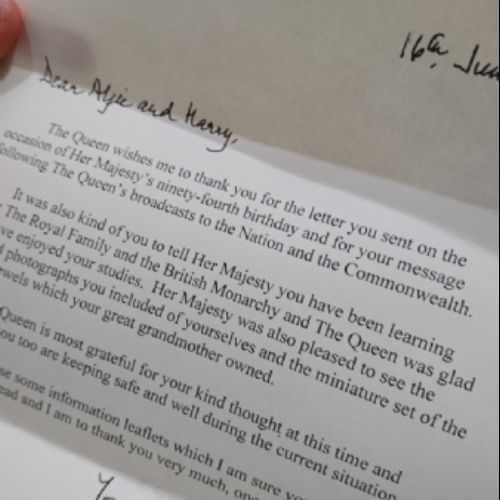 16th Jun
Dear Algie and Harry,
The Queen wishes me to thank you for the letter you sent on the
occasion of Her Majesty's ninety-fourth birthday and for your message
following The Queen's broadcasts to the Nation and the Commonwealth.
It was also kind of you to tell Her Majesty you have been learning
The Royal Family and the British Monarchy and The Queen was glad
ve enjoyed your studies. Her Majesty was also pleased to see the
d photographs you included of yourselves and the miniature set of the
ewels which your great grandmother owned.
Queen is most grateful for your kind thought at this time and
ou too are keeping safe and well during the current situation
se some information leaflets which I am sure yo
ead and I am to thank you very much, onc
Yo